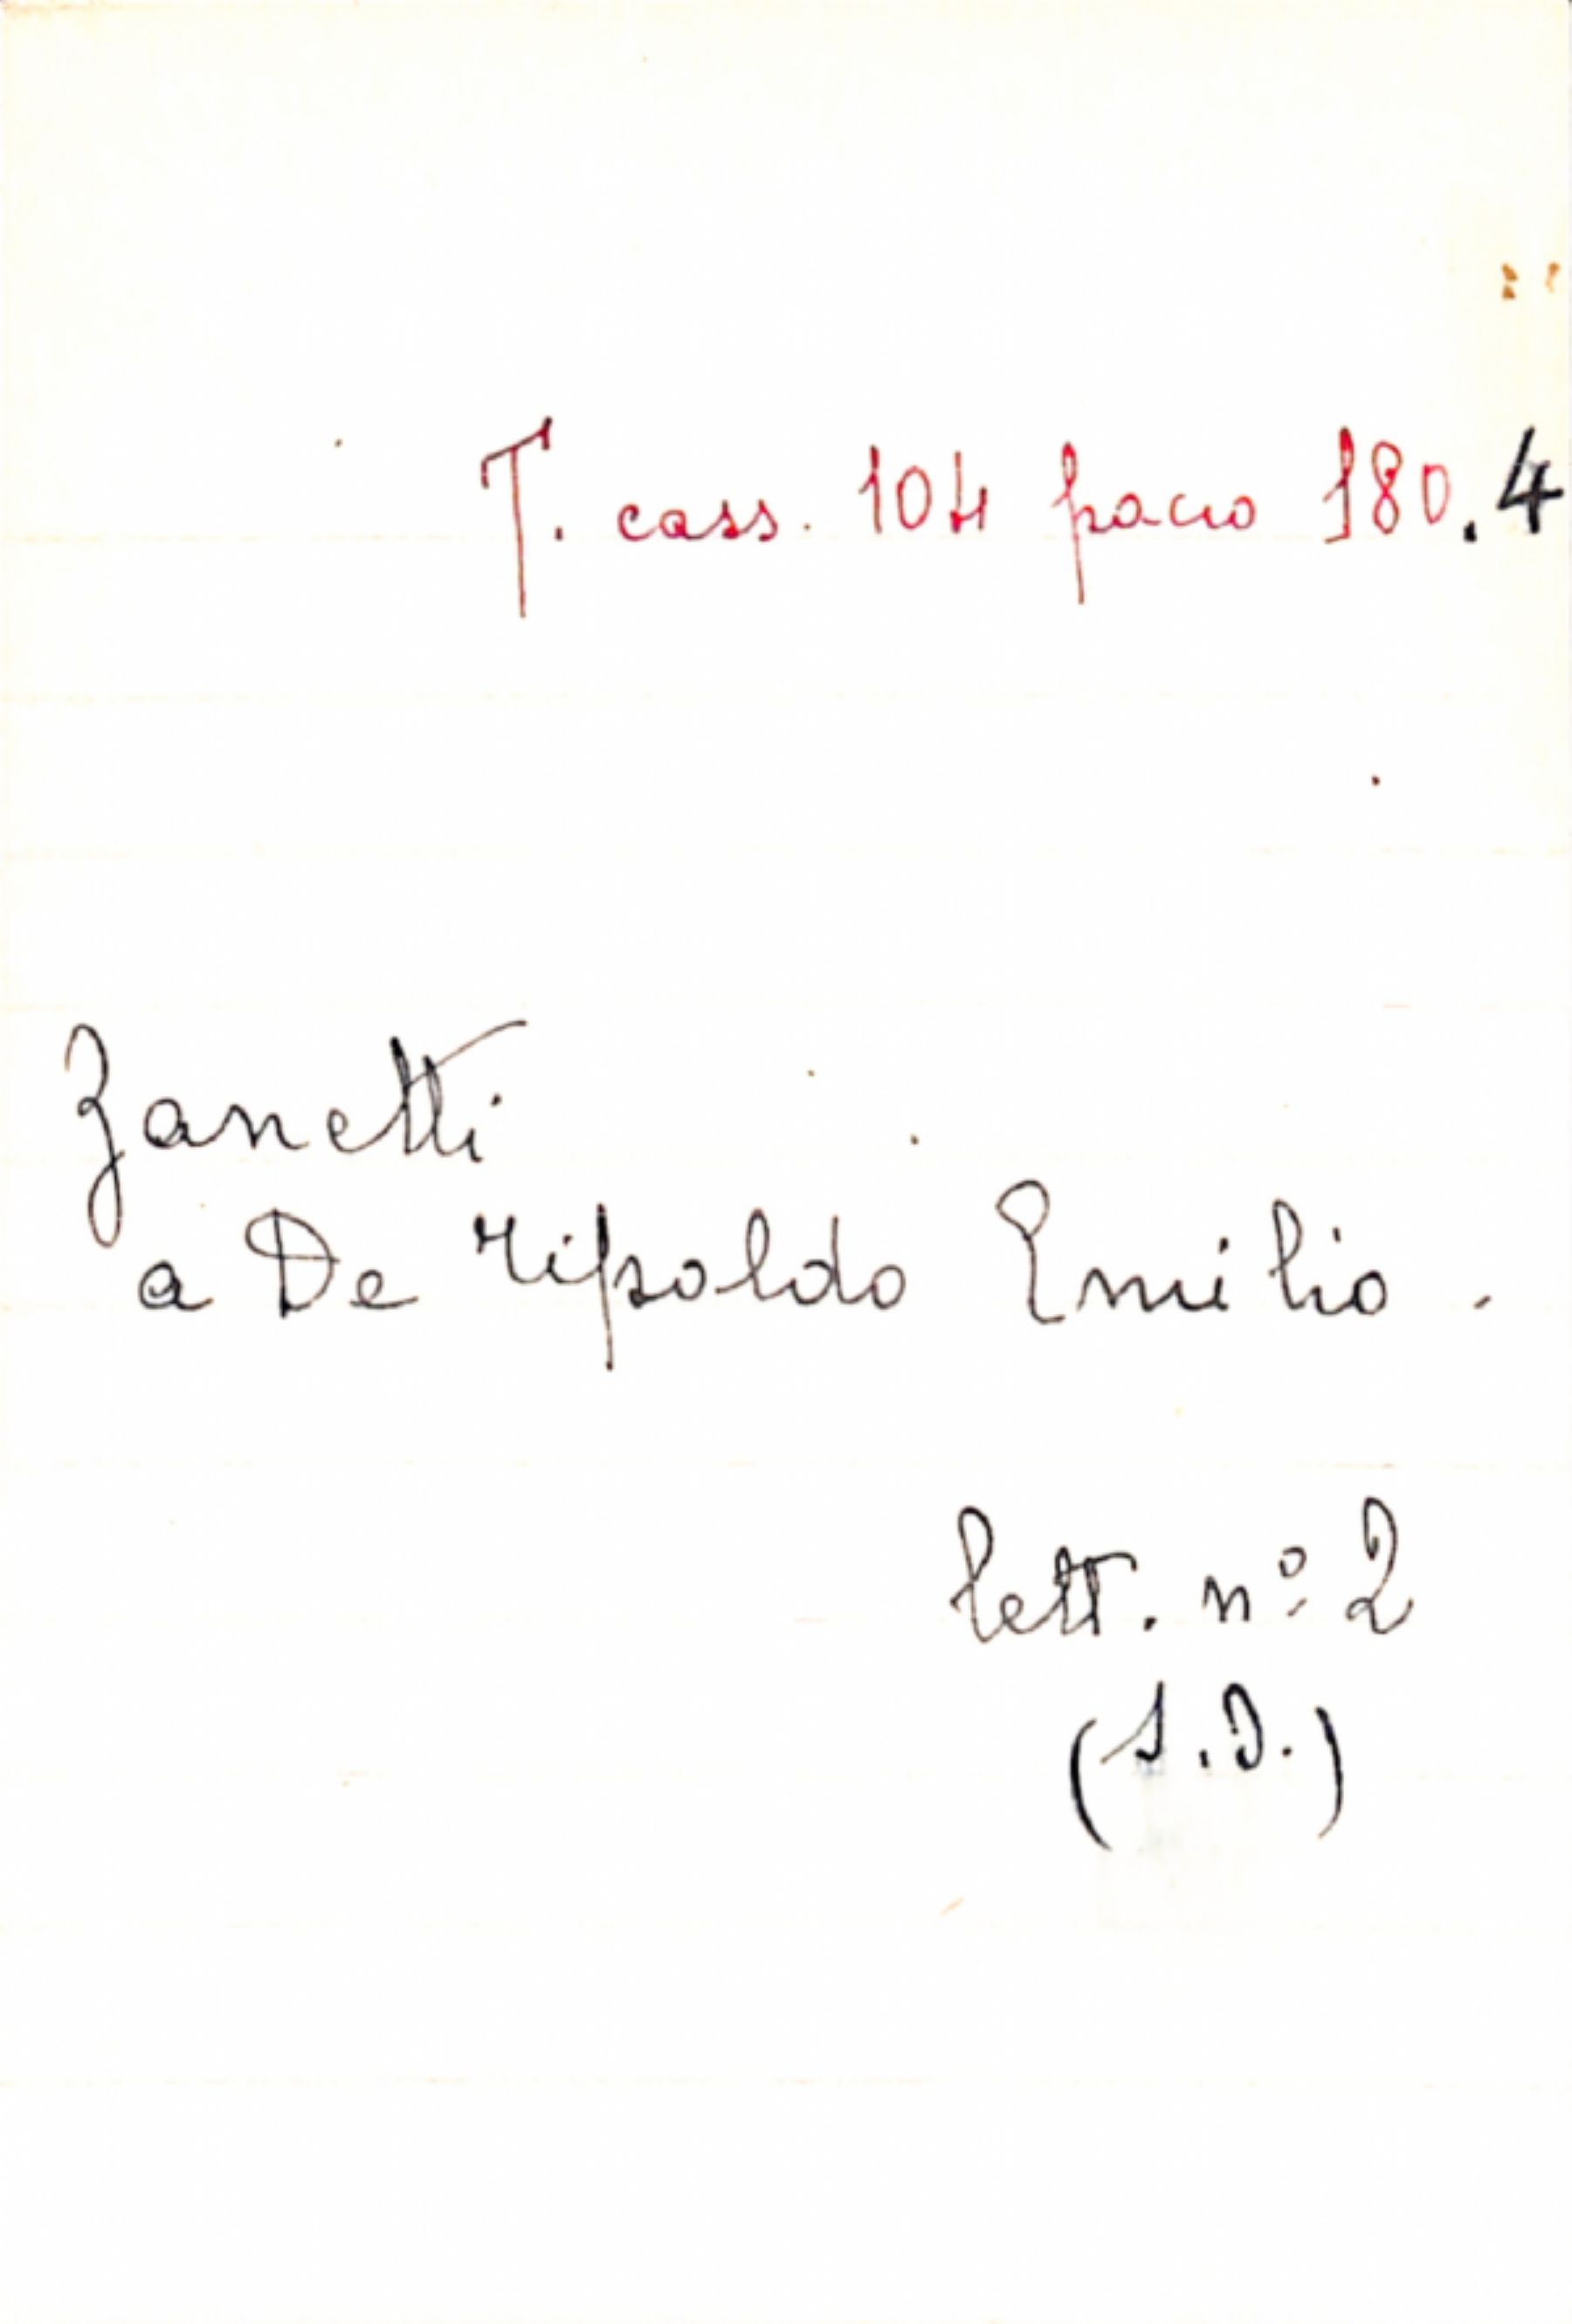 T. cass. 104 pacco 180.4
Zanetti
a De Tipoldo Emilio.
lett. nº 2
(s.d.)